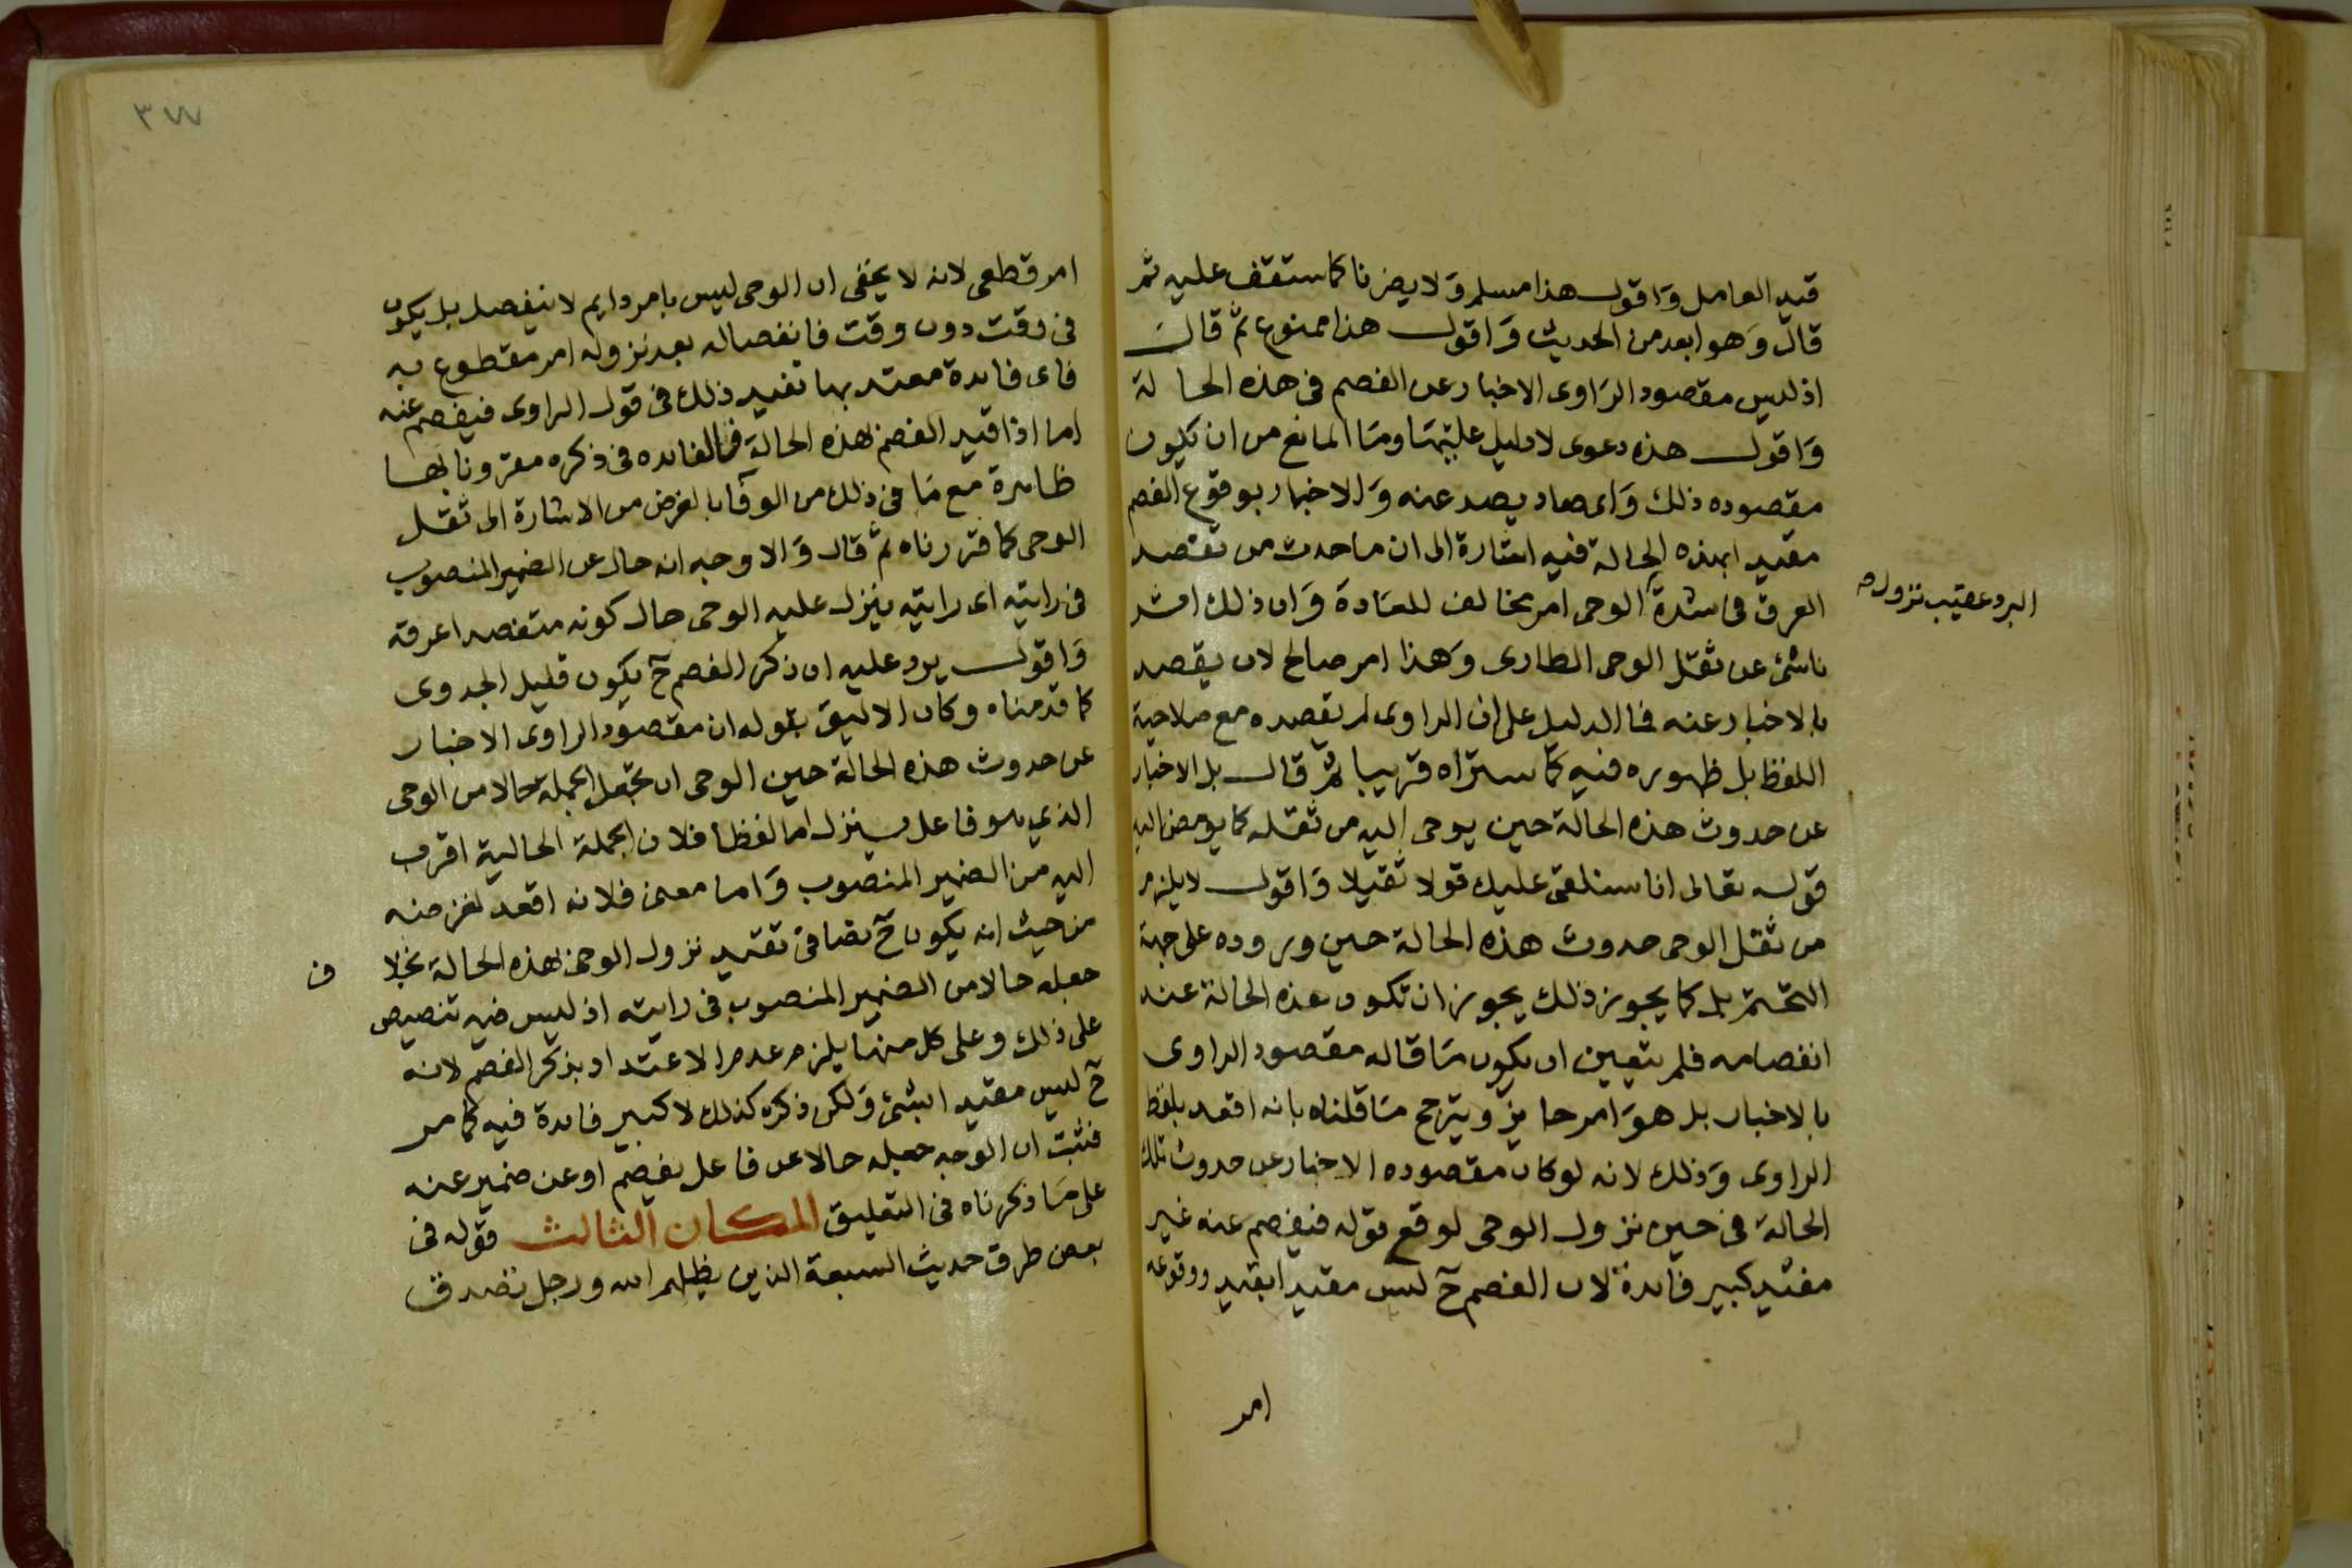 قيد العامل وَاقول هذا مسلم وَلا يضرنا كما ستقف عليه ثم
قال وَهو ابعد من الحديث وَاقول هذا ممنوع ثم قال
اذ ليس مقصود الرَاوى الاخبار عن الفصم فى هذه الحالة
وَاقول هذه دعوى لا دليل عليهَا ومَا المانع من ان يكون
مقصوده ذلك وَاى صاد يصد عنه وَالاخبار بوقوع الفصم
مقيدا بهذه الحالة فيه اشارة الى ان ما حدث من تفصد
العرق فى شدة البرد عقيب نزول الوحى امر مخالف للعَادة وَان ذلك اثر
ناشئ عن ثقل الوحى الطارى وَهذا امر صالح لان يقصد
بالاخبار عنه فما الدليل على ان الراوى لم يقصده مع صلاحية
اللفظ بل ظهوره فيه كما ستراه قريبا ثم قال بل الاخبار
عن حدوث هذه الحالة حين يوحى اليه من ثقله كما يومض اليه
قوله تعالى انا سنلقى عليك قولا ثقيلا وَاقول لا يلزم
من ثقل الوحى حدوث هذه الحالة حين وروده على جهة
التحتم بل كما يجوز ذلك يجوز ان تكون هذه الحالة عند
انفصامه فلم يتعين ان يكون مَا قاله مقصود الراوى
بالاخبار بل هوَ امر جايز ويترجح مَا قلناه بانه اقعد بلفظ
الراوى وَذلك لانه لو كان مقصوده الاخبار عن حدوث تلك
الحالة فى حين نزول الوحى لوقع قوله فيفصم عنه غير
مفيد كبير فائدة لان الفصم ح ليس مقيدا بقيد ووقوعه
امر
٣٧٧
امر قطعى لانه لا يخفى ان الوحى ليس بامر دايم لا ينفصل بل يكون
فى وقت دون وقت فانفصاله بعد نزوله امر مقطوع به
فاى فايدة معتد بها تفيد ذلك فى قول الراوى فيفصم عنه
اما اذا قيد الفصم بهذه الحالة فالفايده فى ذكره مقرونا بها
ظاهرة مع مَا فى ذلك من الوفا بالغرض من الاشارة الى ثقل
الوحى كما قررناه ثم قال وَالاوجه انه حال عن الضمير المنصوب
فى رايته اى رايته ينزل عليه الوحى حال كونه متفصدا عرقه
وَاقول يرد عليه ان ذكر الفصم ح يكون قليل الجدوى
كما قدمناه وكان الاليق بقوله ان مقصود الراوى الاخبار
عن حدوث هذه الحالة حين الوحى ان تجعل الجملة حالا من الوحى
الذي هو فاعل ينزل اما لفظا فلان الجملة الحالية اقرب
اليه من الضمير المنصوب وَاما معنى فلانه اقعد لغرضه
من حيث انه يكون ح نصا فى تقييد نزول الوحى بهذه الحالة بخلاف
جعله حالا من الضمير المنصوب فى رايته اذ ليس فيه تنصيص
على ذلك وعلى كل منهما يلزم عدم الاعتداد بذكر الفصم لانه
ح ليس مقيدا بشئ وَلكن ذكره كذلك لا كبير فائدة فيه كما مر
فثبت ان الوجه جعله حالا عن فاعل يفصم او عن ضمير عنه
على مَا ذكرناه فى التعليق المكان الثالث قوله فى
بعض طرق حديث السبعة الذين يظلهم الله ورجل تصدق